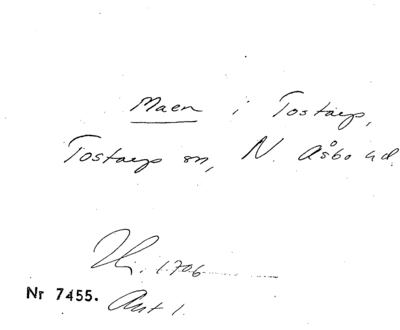 Maen i Tostarp,
Tostarp sn, N. Åsbo hd.
1.706
Nr 7455. Ant 1.